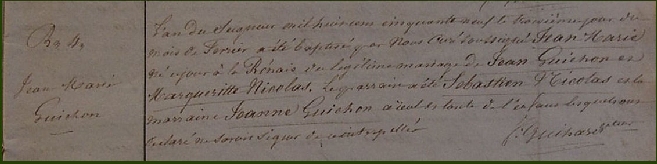 B. 4
Jean Marie
Guichon
L'an du Seigneur mil huit cent cinquante neuf le troisième jour du
mois de Fevrier a été baptisé par Nous Curé soussigné Jean Marie
né ce jour à la Rénais du légitime mariage de Jean Guichon et
Margueritte Nicolas. Le parrain a été Sébastien Nicolas et la
marraine Jeanne Guichon aïeul et tante de l'enfant lesquels ont
declaré ne savoir signer de ce interpellés
Guichard